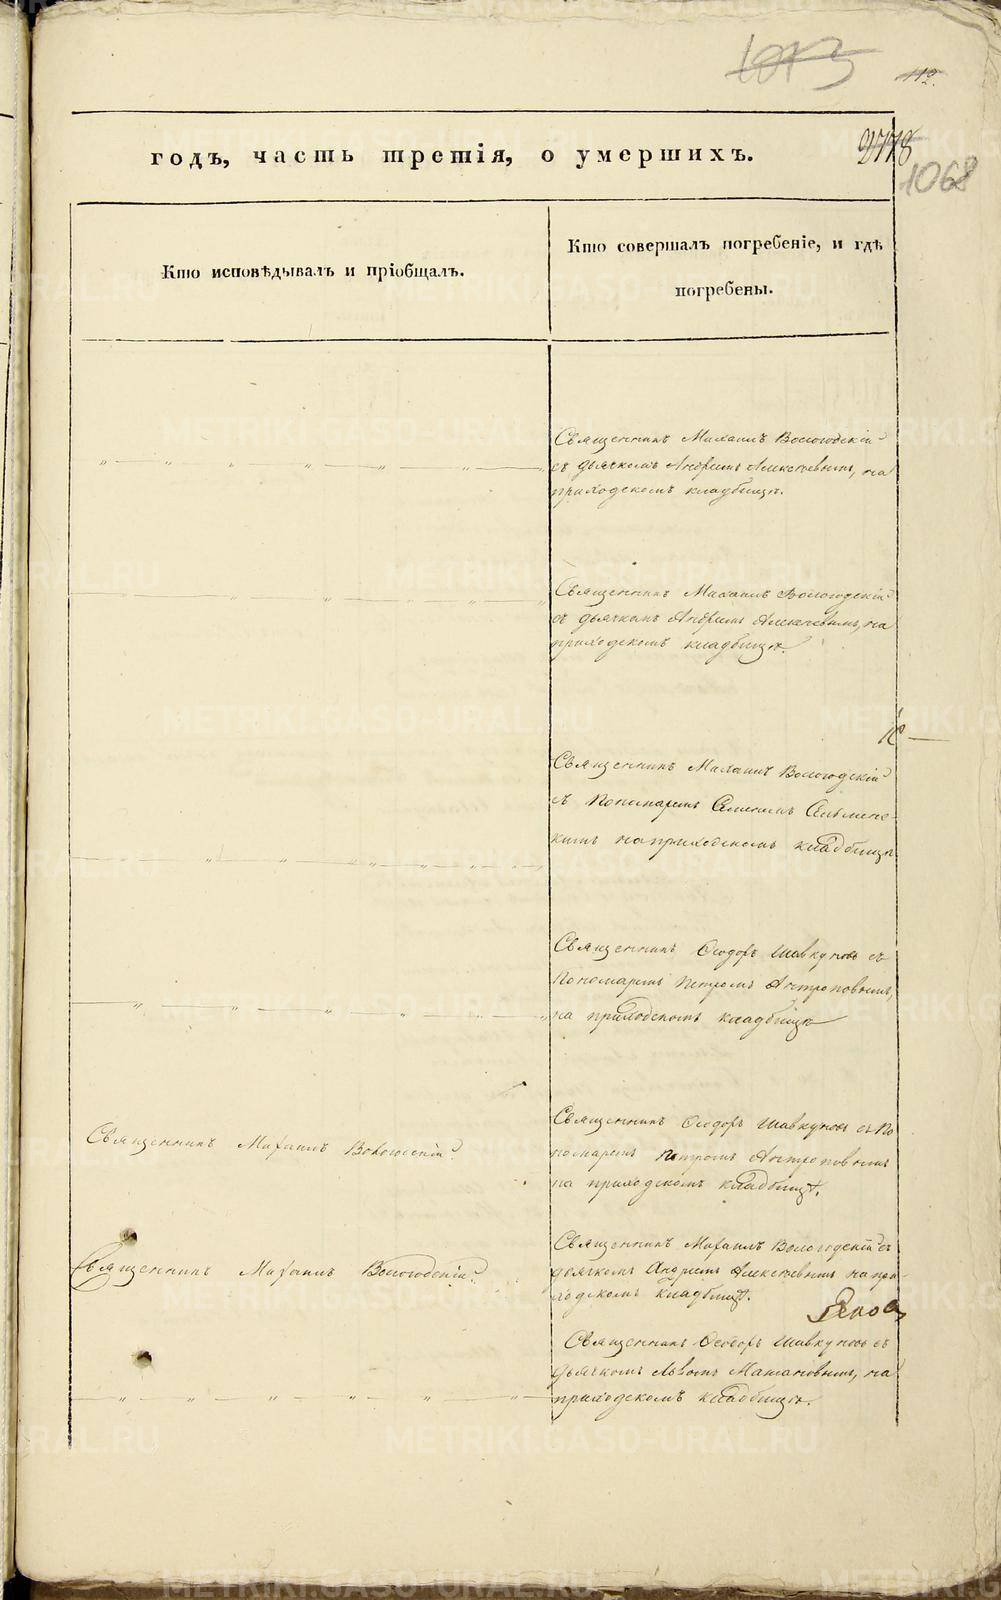 1013
112.
годъ, часть третія, о умершихъ.
2778
1068
Кто исповѣдывалъ и пріобщалъ.
Кто совершалъ погребеніе, и гдѣ
погребены.
Священникъ Михаилъ Вологодскій
съ дьячкомъ Андреемъ Алексѣевымъ, на
приходскомъ кладбищѣ.
Священникъ Михаилъ Вологодскій
съ дьячкомъ Андреемъ Алексѣевымъ, на
приходскомъ кладбищѣ.
Священникъ Михаилъ Вологодскій
съ Пономаремъ Симеономъ
на приходскомъ кладбищѣ
Священникъ Ѳеодоръ Шавкуновъ съ
Пономаремъ Петромъ Антроповымъ,
на приходскомъ кладбищѣ
Священникъ Михаилъ Вологодскій.
Священникъ Ѳеодоръ Шавкуновъ съ По
номаремъ Петромъ Антроповымъ
на приходскомъ кладбищѣ.
Священникъ Михаилъ Вологодскій.
Священникъ Михаилъ Вологодскій съ
дьячкомъ Андреемъ Алексѣевымъ на при-
ходскомъ кладбищѣ.
Священникъ Ѳеодоръ Шавкуновъ съ
дьячкомъ Львомъ, на
приходскомъ кладбищѣ.
METRIKI.GASO-URAL.RU